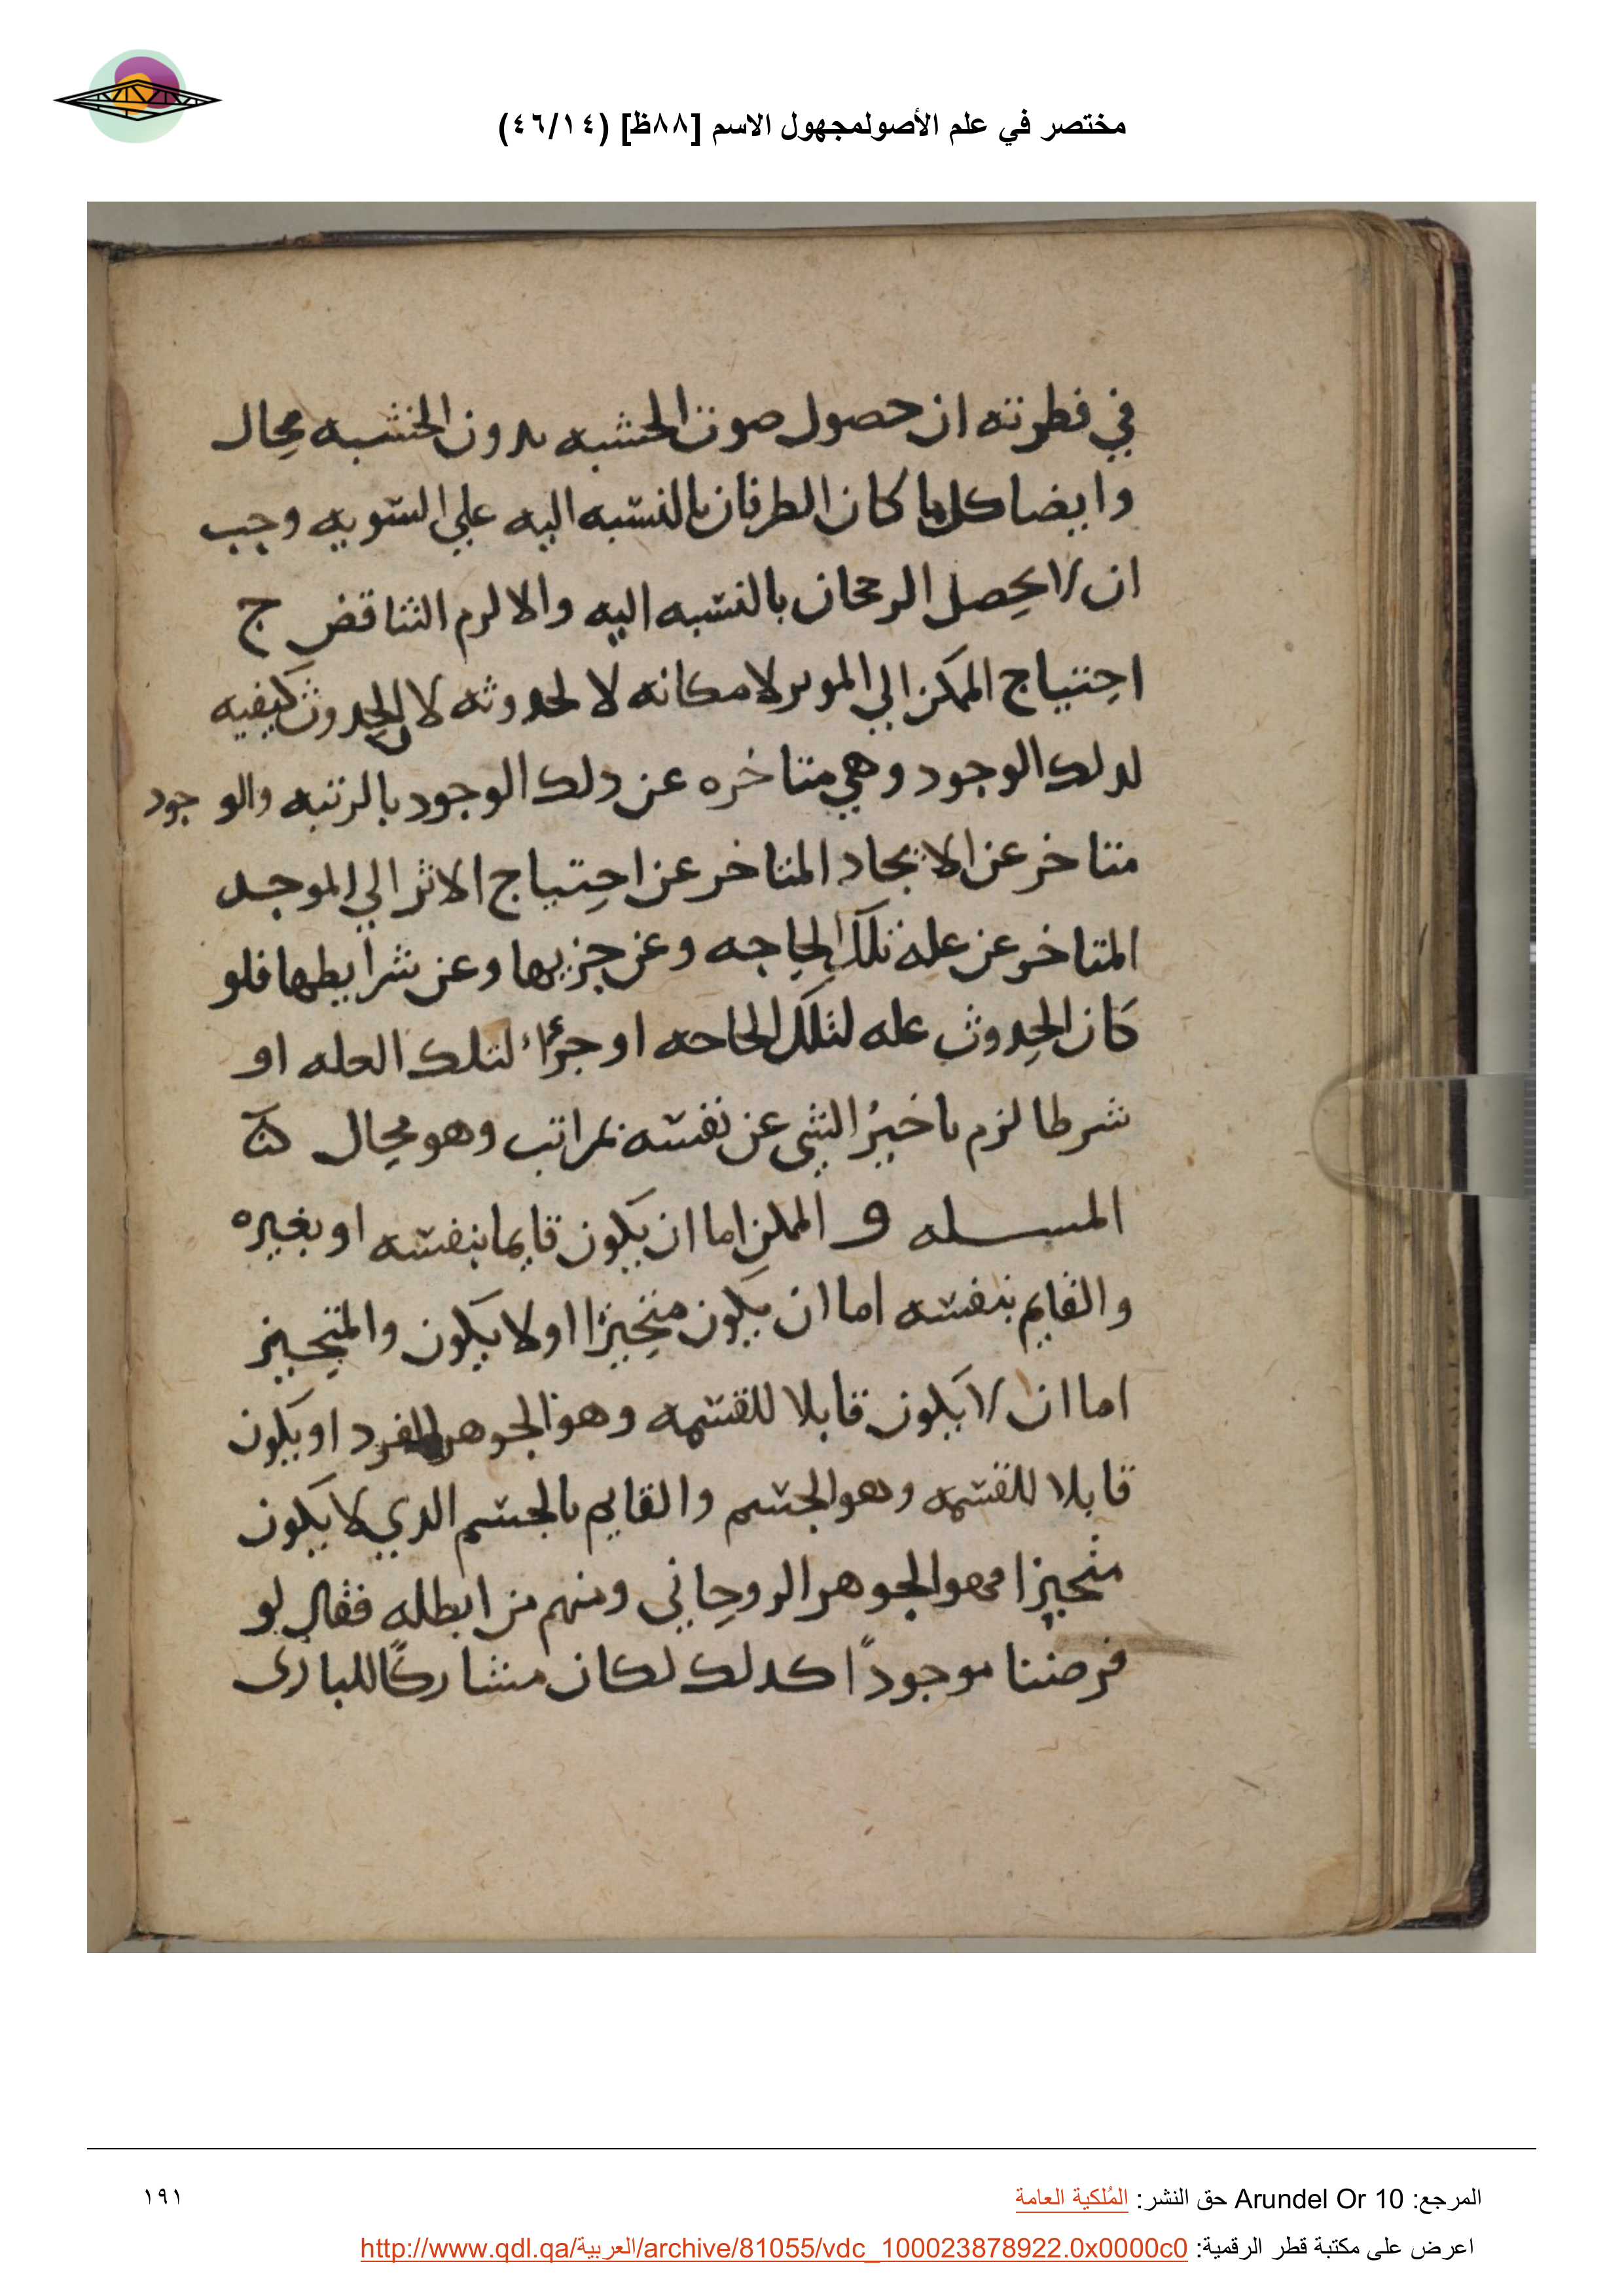 مختصر في علم الأصولمجهول الاسم [٨٨ظ] (٤٦/١٤)
في فطرته ان حصول صوت الخشبه بدون الخشبه محال
وايضا كل ما كان الطرفان بالنسبه اليه علي السويه وجب
ان لا يحصل الرجحان بالنسبه اليه والا لزم التناقض ج
احتياج الممكن الي الموثر لامكانه لا لحدوثه لان الحدوث كيفيه
لذلك الوجود وهي متاخره عن ذلك الوجود بالرتبه والوجود
متاخر عن الايجاد المتاخر عن احتياج الاثر الي الموجد
المتاخر عن علة تلك الحاجه وعن جزيها وعن شرايطها فلو
كان الحدوث عله لتلك الحاجه او جزًاء لتلك العله او
شرطا لزم تاخيرُ الشي عن نفسه بمراتب وهو محال
المسله و الممكن اما ان يكون قايما بنفسه او بغيره
والقايم بنفسه اما ان يكون متحيزا او لا يكون والمتحيز
اما ان لا يكون قابلا للقسمه وهو الجوهر الفرد او يكون
قابلا للقسمه وهو الجسم والقايم بالجسم الذي لا يكون
متحيزا فهو الجوهر الروحاني ومنهم من ابطله فقال لو
فرضنا موجودًا كذلك لكان مشاركًا للباري
المرجع: Arundel Or 10 حق النشر: المُلكية العامة
١٩١
اعرض على مكتبة قطر الرقمية: http://www.qdl.qa/العربية/archive/81055/vdc_100023878922.0x0000c0